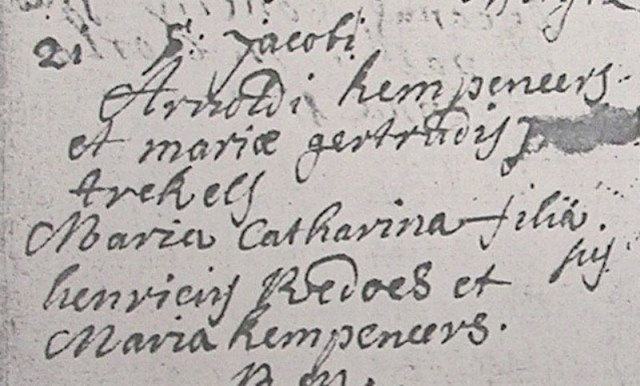 21 S. Jacobi
Arnoldi kempeneers
et mariæ gertrudis
trekels
Maria Catharina filia
henricus Redoes et sus
Maria kempeneers.